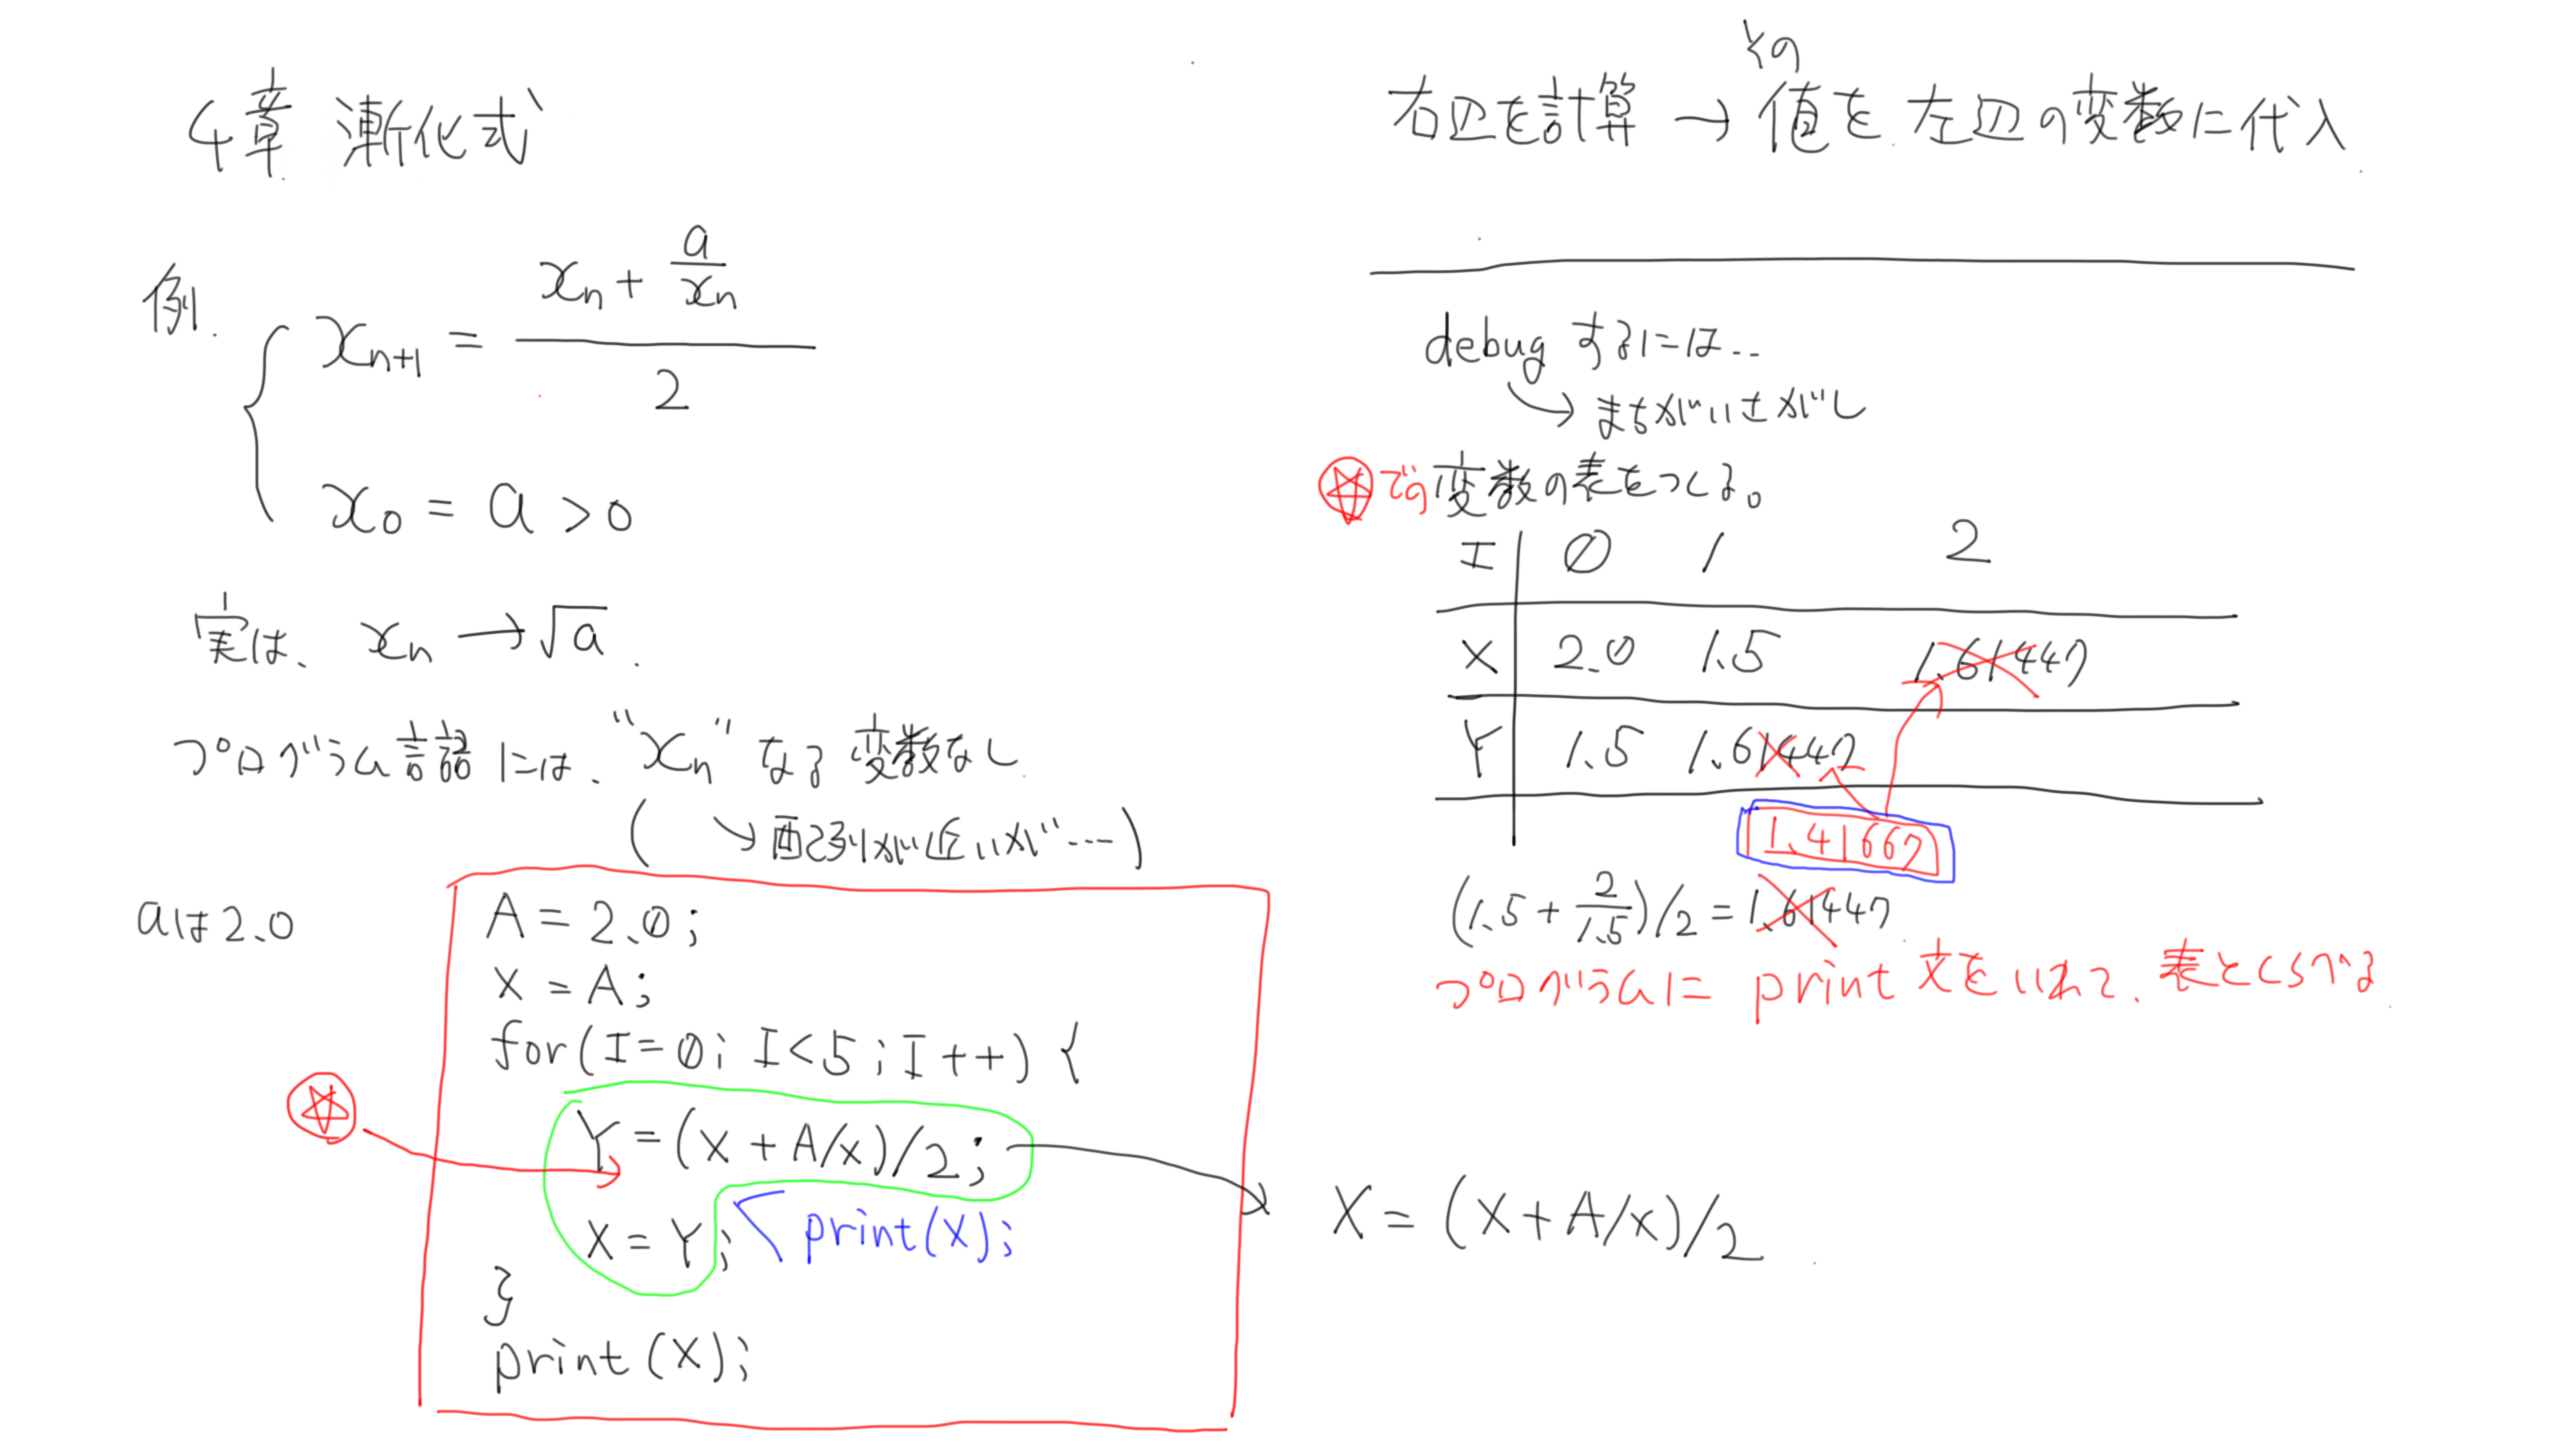 4章 漸化式
例. x_{n+1} = (x_n + a/x_n) / 2
x_0 = a > 0
実は、x_n → √a.
プログラム言語には、"x_n" なる変数なし
( → 配列が近いが… )
aは2.0
A = 2.0;
X = A;
for(I=0; I<5; I++) {
Y = (X + A/X)/2;
X = Y; print(X);
}
print(X);
その
右辺を計算 → 値を左辺の変数に代入
debug するには..
→ まちがいさがし
☆での変数の表をつくる。
I 0 1 2
X 2.0 1.5 1.61447
Y 1.5 1.61447
1.41667
(1.5 + 2/1.5)/2 = 1.61447
プログラムに print 文をいれて、表とくらべる
X = (X + A/X)/2